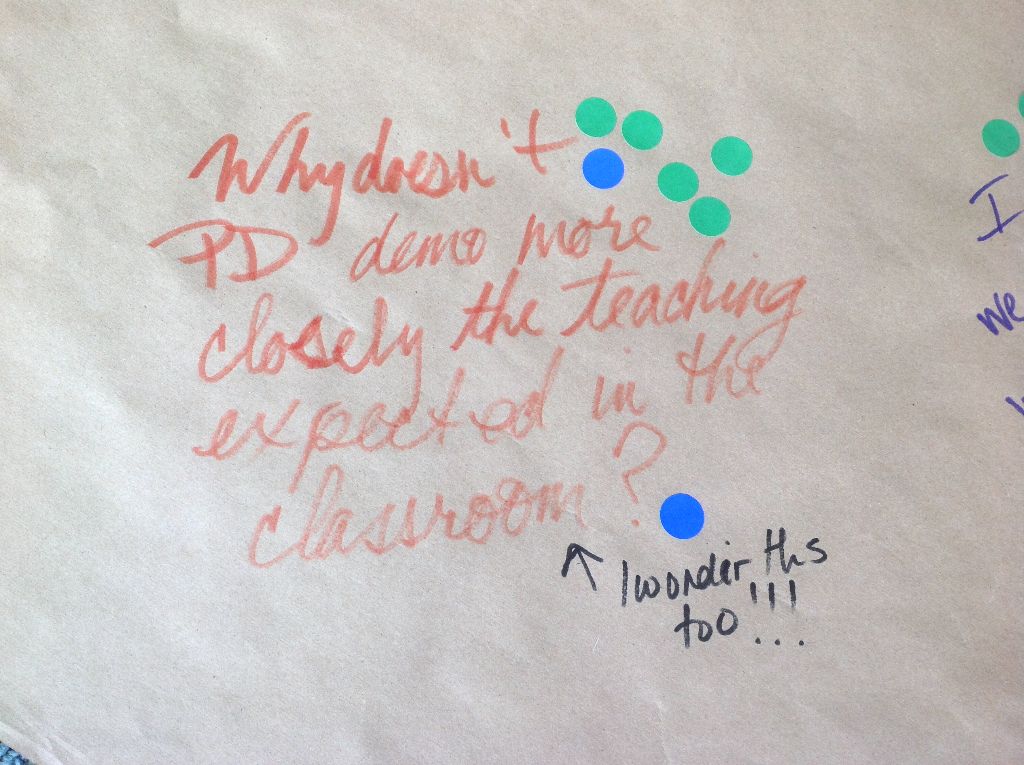 Why doesn't
PD demo more
closely the teaching
expected in the
classroom?
↑ I wonder ths
too!!!...
I
we